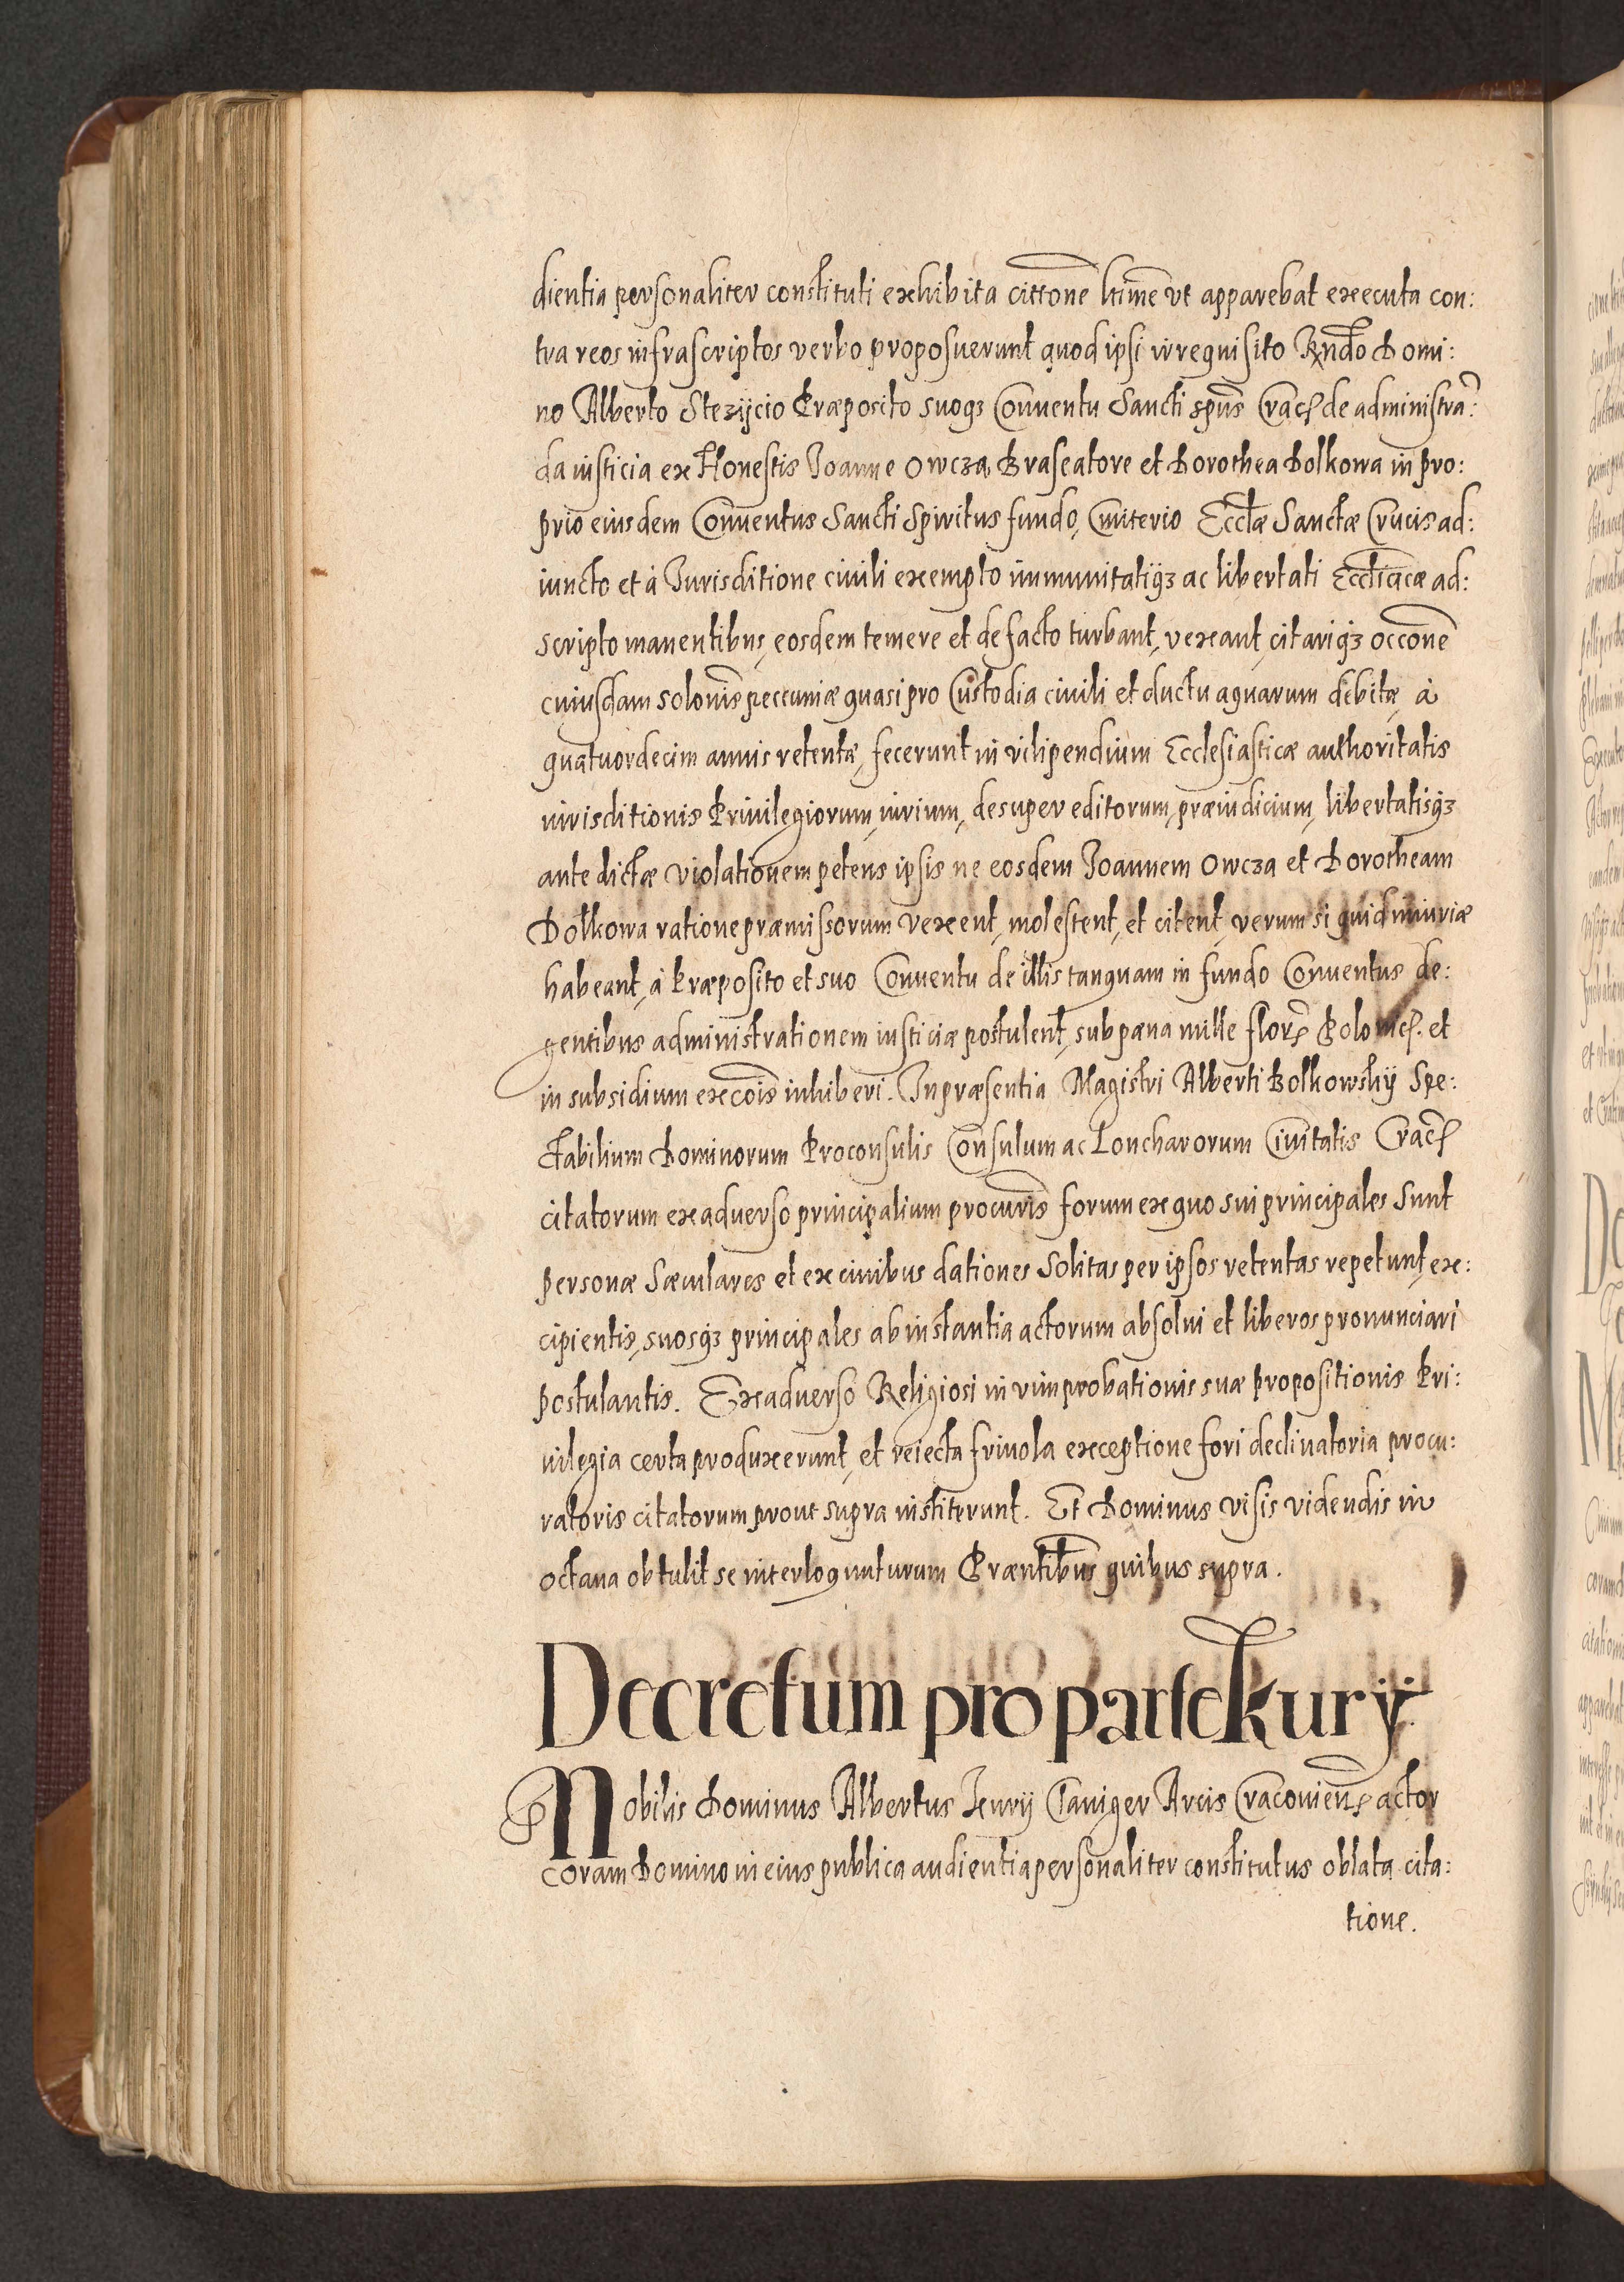 dientia personaliter constituti exhibita cittone ltime vt apparebat executa con:
tra reos infrascriptos verbo proposuerunt quod ipsi irrequisito Rndo Domi:
no Alberto Stezijcio Præposito suoq3 Conuentu Sancti spūs Crac de administra:
da iusticia ex Honestis Joanne Owcza Braseatore et Dorothea Dolkowa in pro:
prio eiusdem Conuentus Sancti Spiritus fundo, Cmiterio Ecctæ Sanctæ Crucis ad:
iuncto et à Jurisditione ciuili exempto immunitatiq3 ac libertati Ecctiacæ ad:
scripto manentibus, eosdem temere et de facto turbant, vexant, citariq3 occone
cuiusdam solonis peccuniæ quasi pro Custodia ciuili et ductu aquarum debitæ, à
quatuordecim annis retentæ, fecerunt in vilipendium Ecclesiasticæ authoritatis
iurisditionis Priuilegiorum, iurium, desuper editorum, præiudicium, libertatisq3
ante dictæ violationem petens ipsis ne eosdem Joannem Owcza et Dorotheam
Dolkowa ratione præmissorum vexent, molestent, et citent, verum si quid iniuriæ
habeant, à Præposito et suo Conuentu de illis tanquam in fundo Conuentus de:
gentibus administrationem iusticiæ postulent, sub pæna mille flor Polonic. et
in subsidium excōis inhiberi. In præsentia Magistri Alberti Bolkowskij Spe:
ctabilium Dominorum Proconsulis Consulum ac Loncharorum Ciuitatis Crac
citatorum ex aduerso principalium procuris forum ex quo sui principales sunt
personæ Sæculares et ex ciuibus dationes solitas per ipsos retentas repetunt, ex:
cipientis, suosq3 principales ab instantia actorum absolui et liberos pronunciari
postulantis. Ex aduerso Religiosi in vim probationis suæ propositionis Pri:
uilegia certa produxerunt, et reiecta friuola exceptione fori declinatoria procu:
ratoris citatorum prout supra institerunt. Et Dominus visis videndis in
octaua obtulit se interloquuturum Præntibus quibus supra.
Decretum pro parte kurÿ
Nobilis Dominus Albertus Kurij Clauiger Arcis Cracouien actor
coram Domino in eius publica audientia personaliter constitutus oblata cita:
tione.